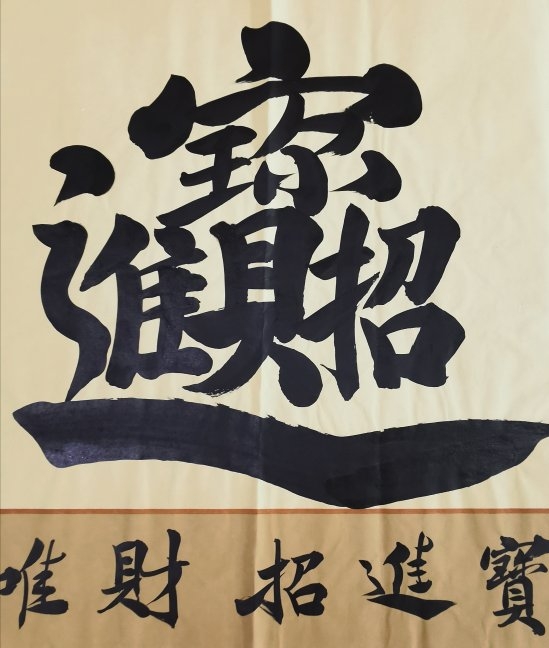 招財進寶
唯財招進寶